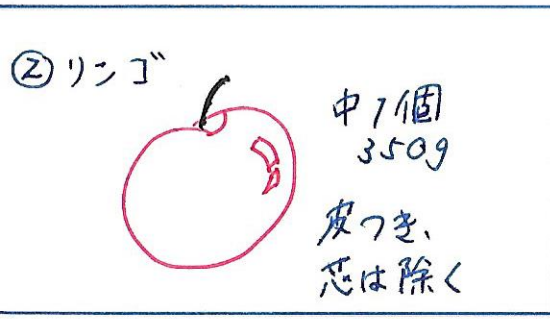 ②リンゴ
中1個
350g
皮つき、
芯は除く